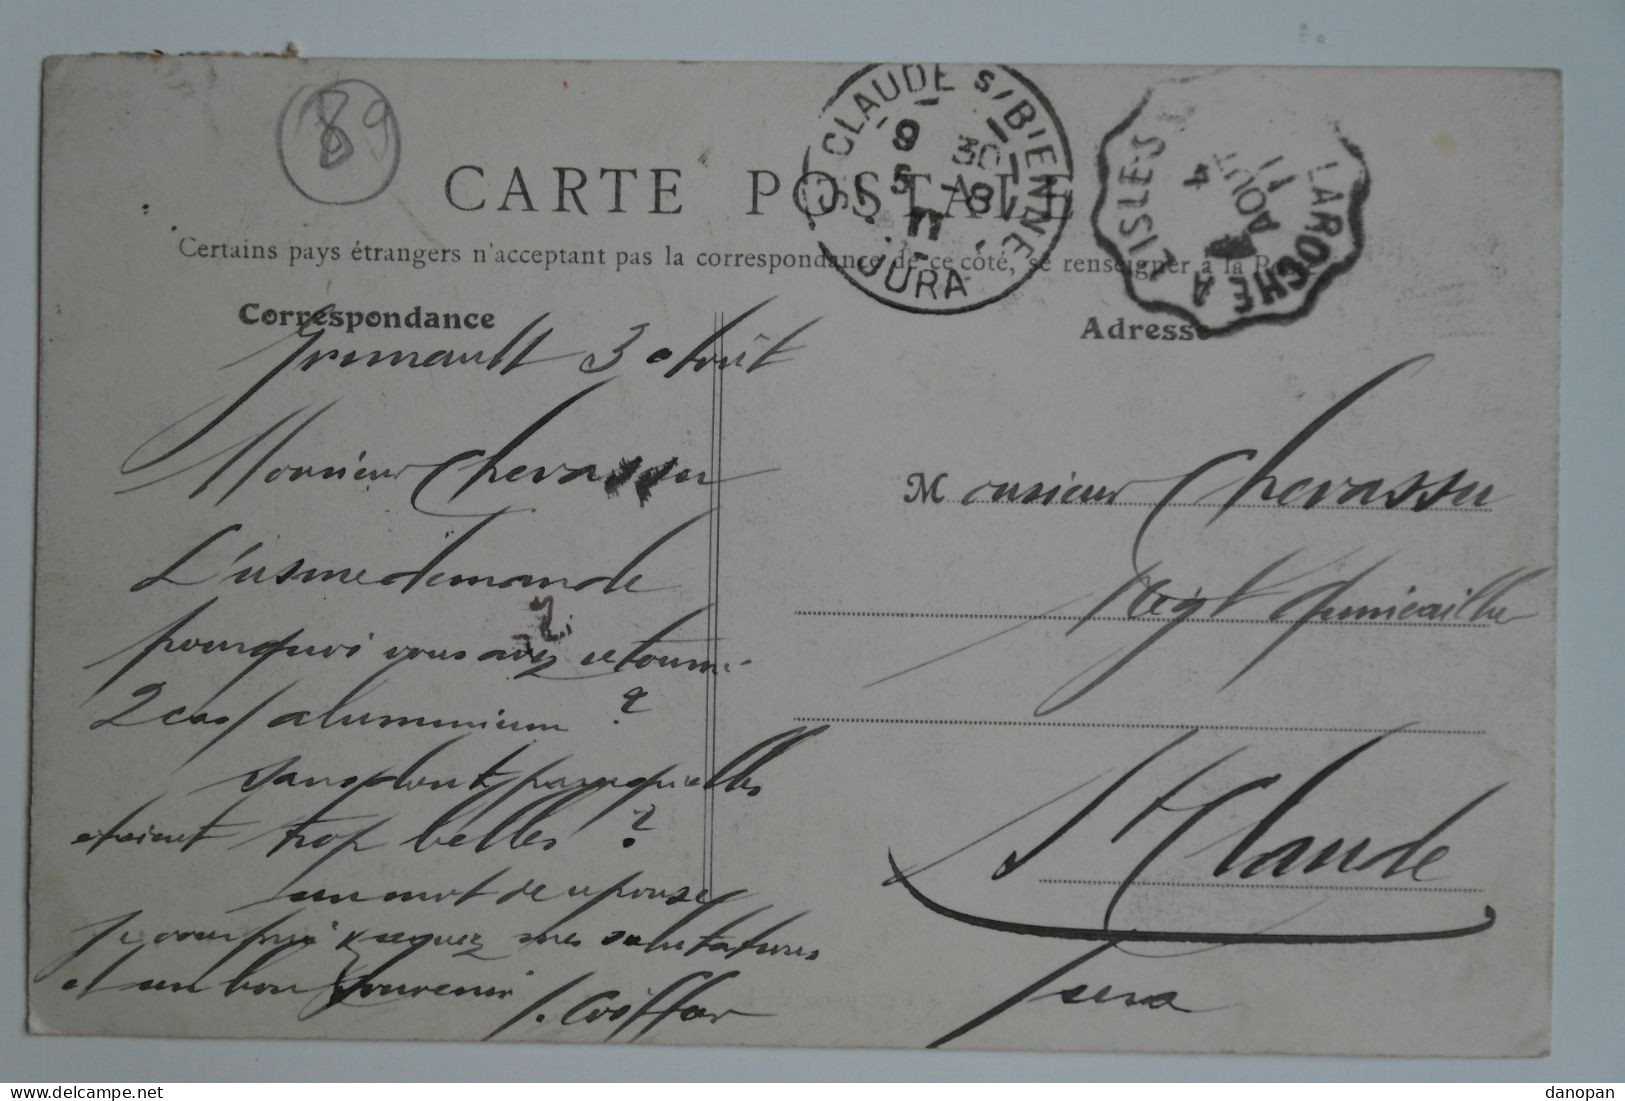 89
CARTE POSTALE
Certains pays étrangers n'acceptant pas la correspondance de ce côté, se renseigner à la Poste
ST CLAUDE S/BIENNE
9 30
5 -8
11
JURA
LAROCHE A L'ISLE
4
AOUT
11
Correspondance
Grimault 3 Août
Monsieur Chevassu
L'usine demande
pourquoi vous avez retourné
2 cas/ aluminium ?
sans doute parcequ'elles
étaient trop belles ?
un mot de réponse
Je vous prie recevez mes salutations
et un bon souvenir
J. Coiffar
Adresse
Monsieur Chevassu
Négt Quincailler
St Claude
Jura
danopan